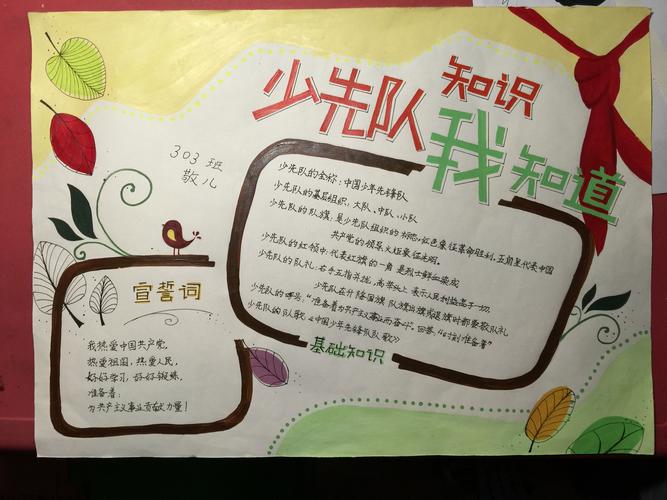 少先队知识我知道
303班
敬儿
少先队的全称：中国少年先锋队
少先队的基层组织：大队、中队、小队
少先队的队旗：是少先队组织的标志，红色象征革命胜利，五角星代表中国
共产党的领导，火炬象征光明。
少先队的红领巾：代表红旗的一角 是烈士鲜血染成
少先队的队礼：右手五指并拢，高举头上 表示人民利益高于一切。
少先队在升降国旗 队旗出旗或退旗时都要敬队礼
少先队的呼号："准备着为共产主义事业而奋斗，回答："时刻准备着"
少先队的队歌《中国少年先锋队队歌》
基础知识
宣誓词
我热爱中国共产党，
热爱祖国，热爱人民，
好好学习，好好锻炼，
准备着：
为共产主义事业贡献力量！